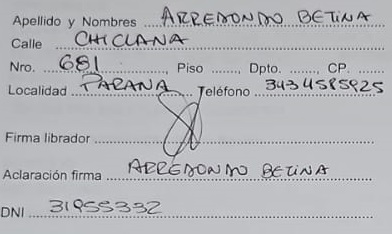 Apellido y Nombres ARREDONDO BETINA
Calle CHICLANA
Nro. 681 Piso ......, Dpto. ......, CP. ......
Localidad PARANA Teléfono 3434585925
Firma librador
Aclaración firma ARREDONDO BETINA
DNI 31955332